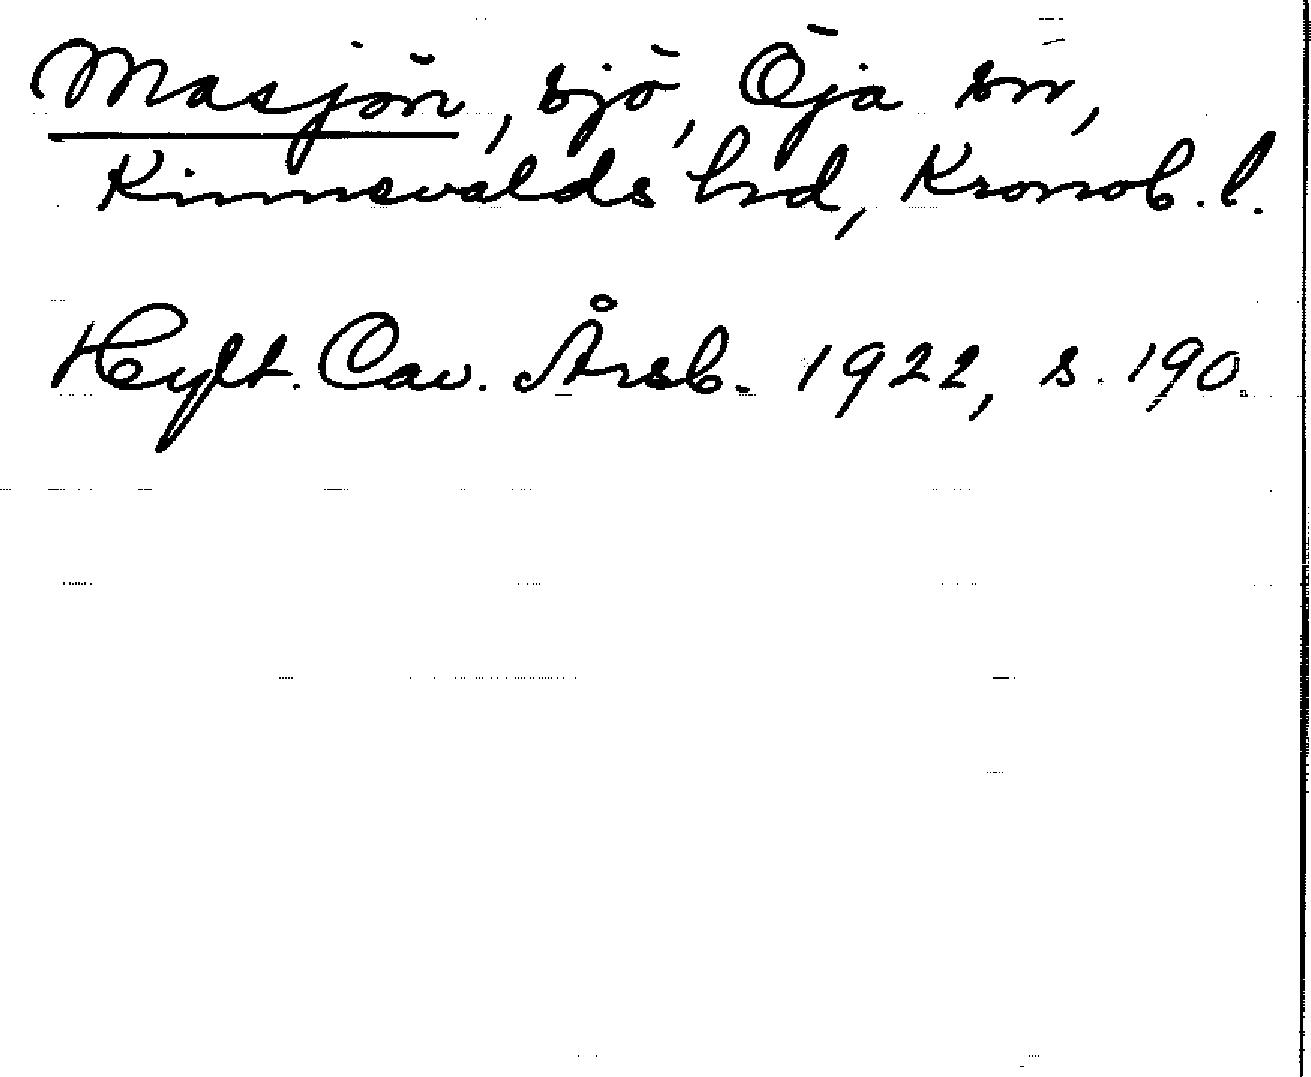 Masjön, sjö, Öja sn,
Kinnevalds hrd, Kronob. l.
Hylt. Cav. Årsb. 1922, s. 190.